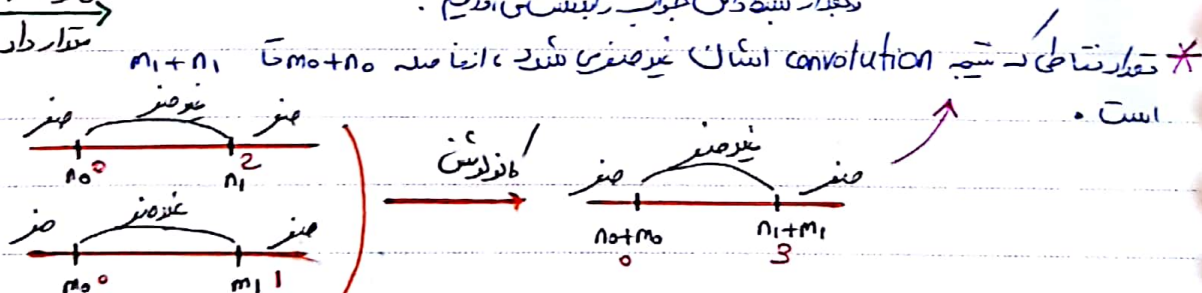 مقدار داد
* تعداد نقاطی که نتیجه convolution اشان غیر صفر می شود ، از فاصله m₀+n₀ تا m₁+n₁
است .
صفر غیر صفر صفر
n₀ 0 n₁ 2
صفر غیر صفر صفر
m₀ 0 m₁ 1
کانولوشن
صفر غیر صفر صفر
n₀+m₀ n₁+m₁
0 3